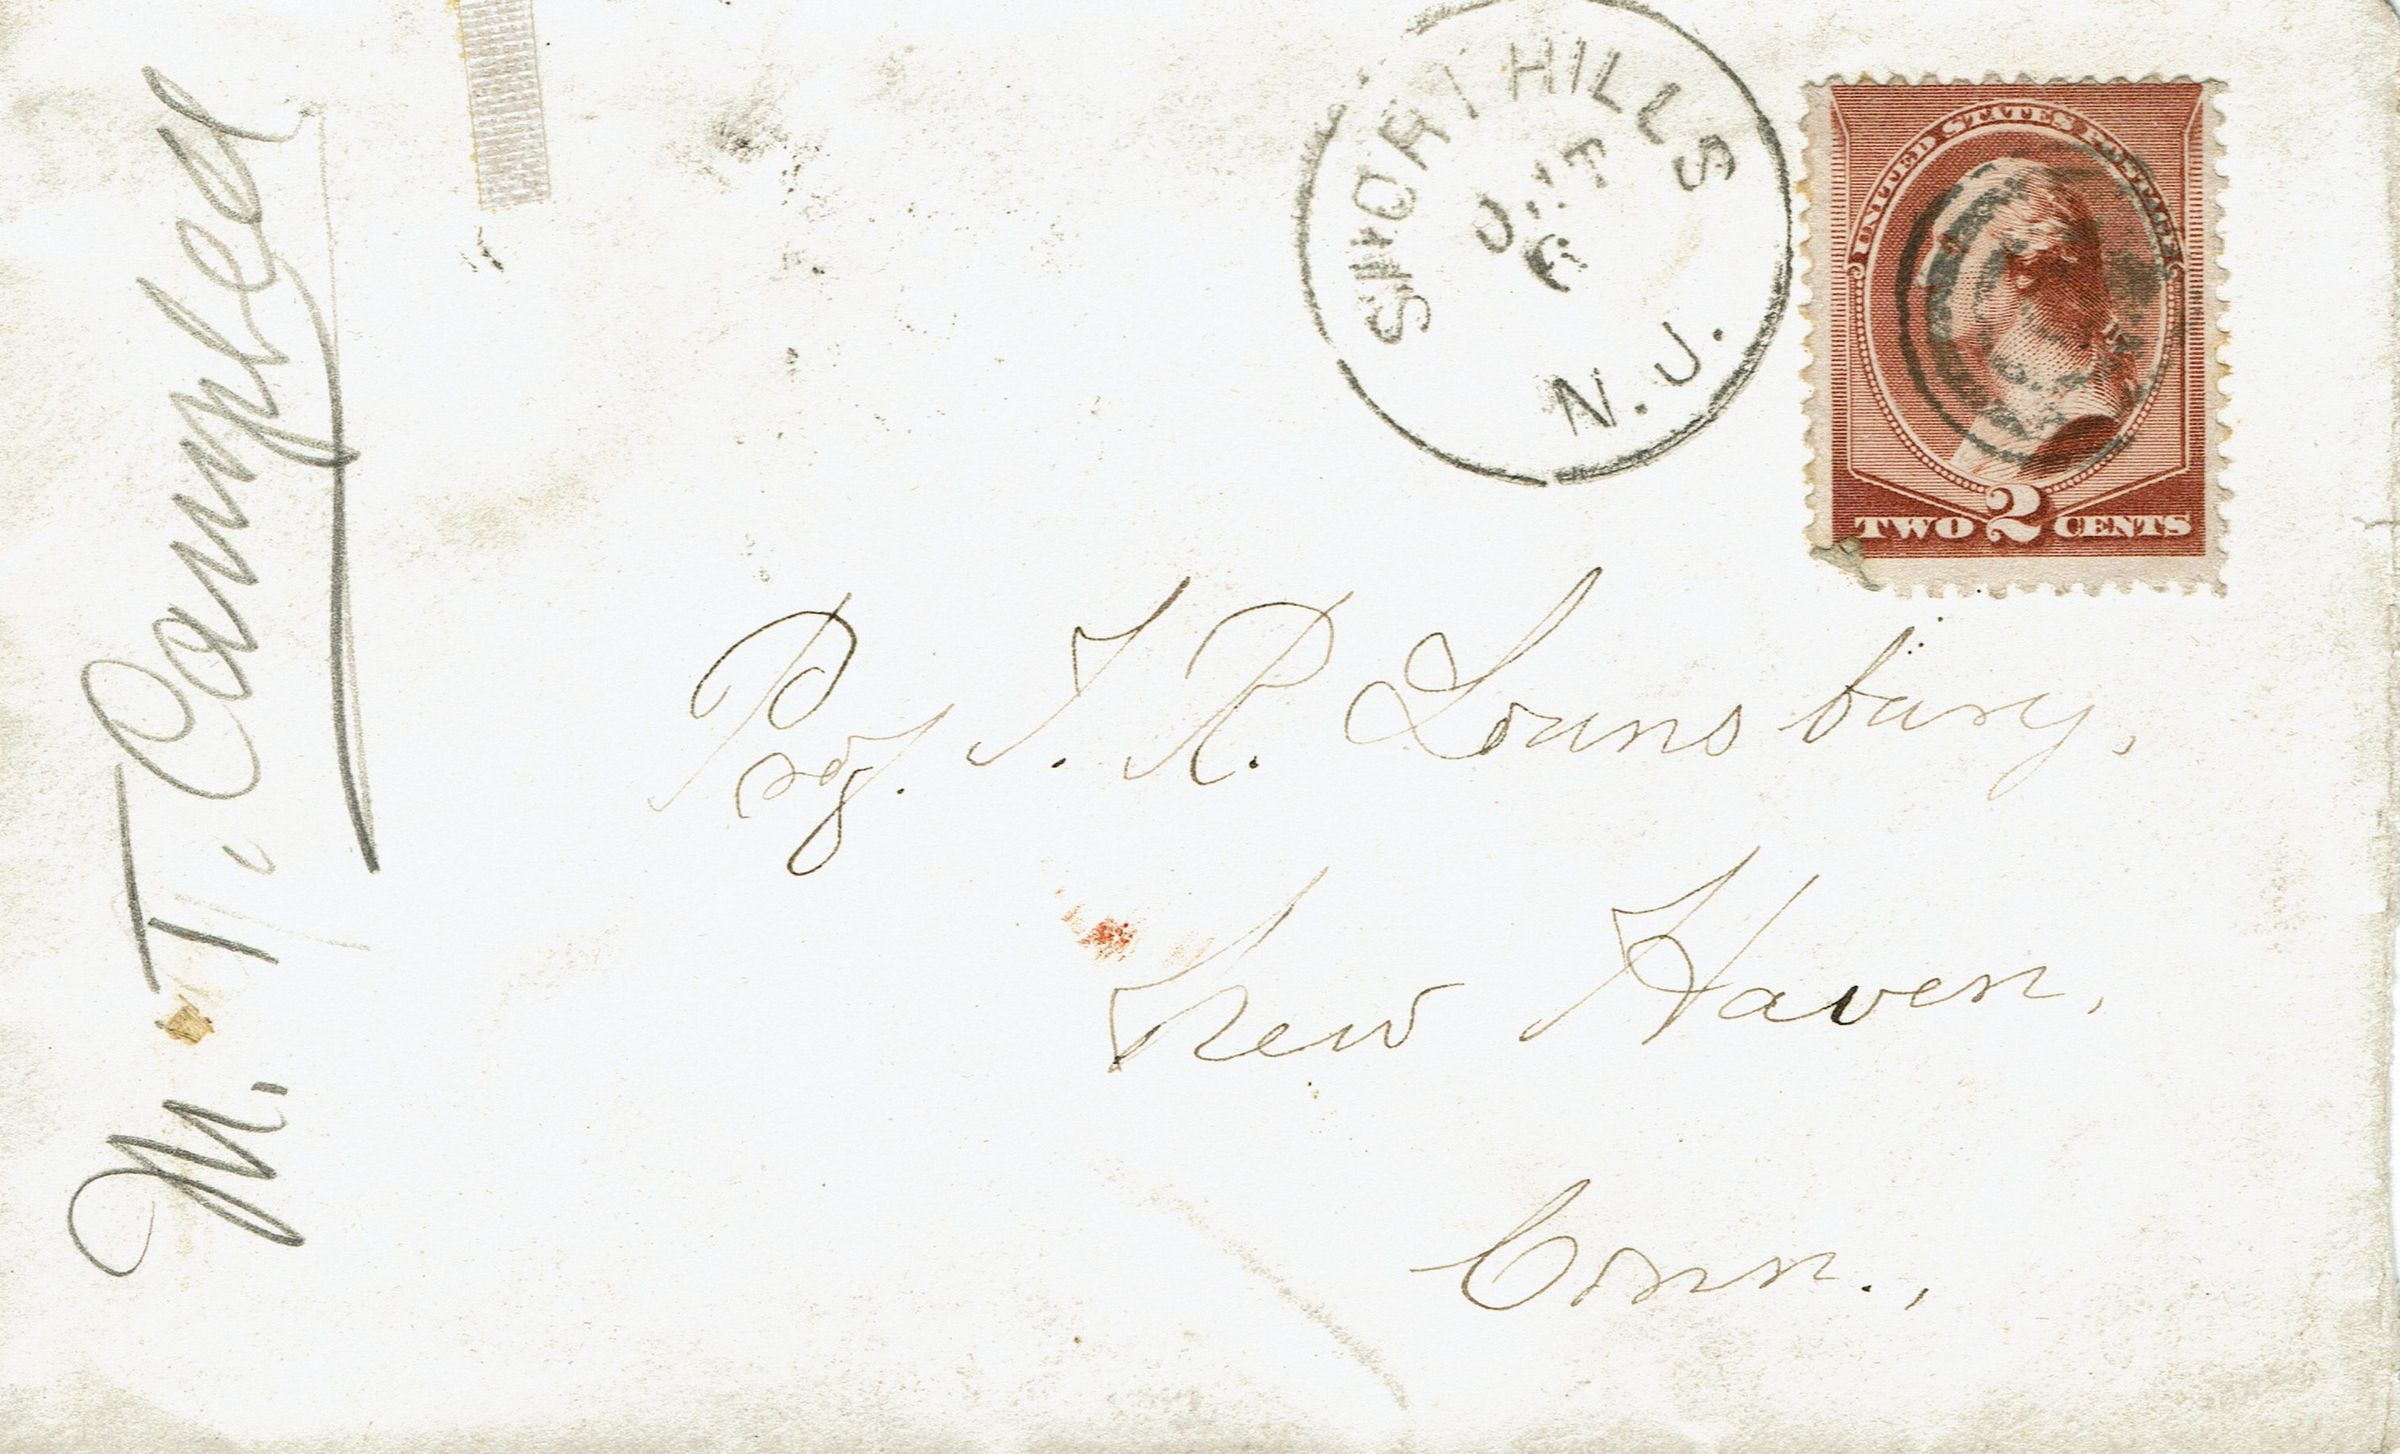 SHORT HILLS
6
N.J.
UNITED STATES POSTAGE
TWO 2 CENTS
Prof. T. R. Lounsbury,
New Haven,
Conn.,
M. T. Campbell